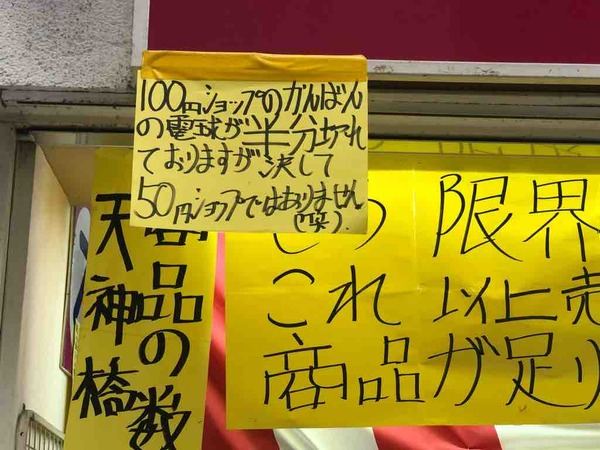 100円ショップのかんばん
の電球が半分切れ
ておりますが決して
50円ショップではありません
(笑)
限界
これ以上売
商品が足り
天神橋
商品の数